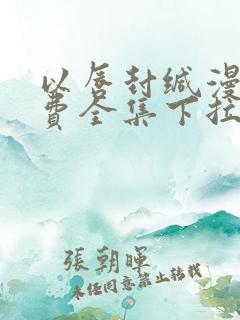 以唇封缄漫
费全集下拉
張朝暉
未经同意禁止转载